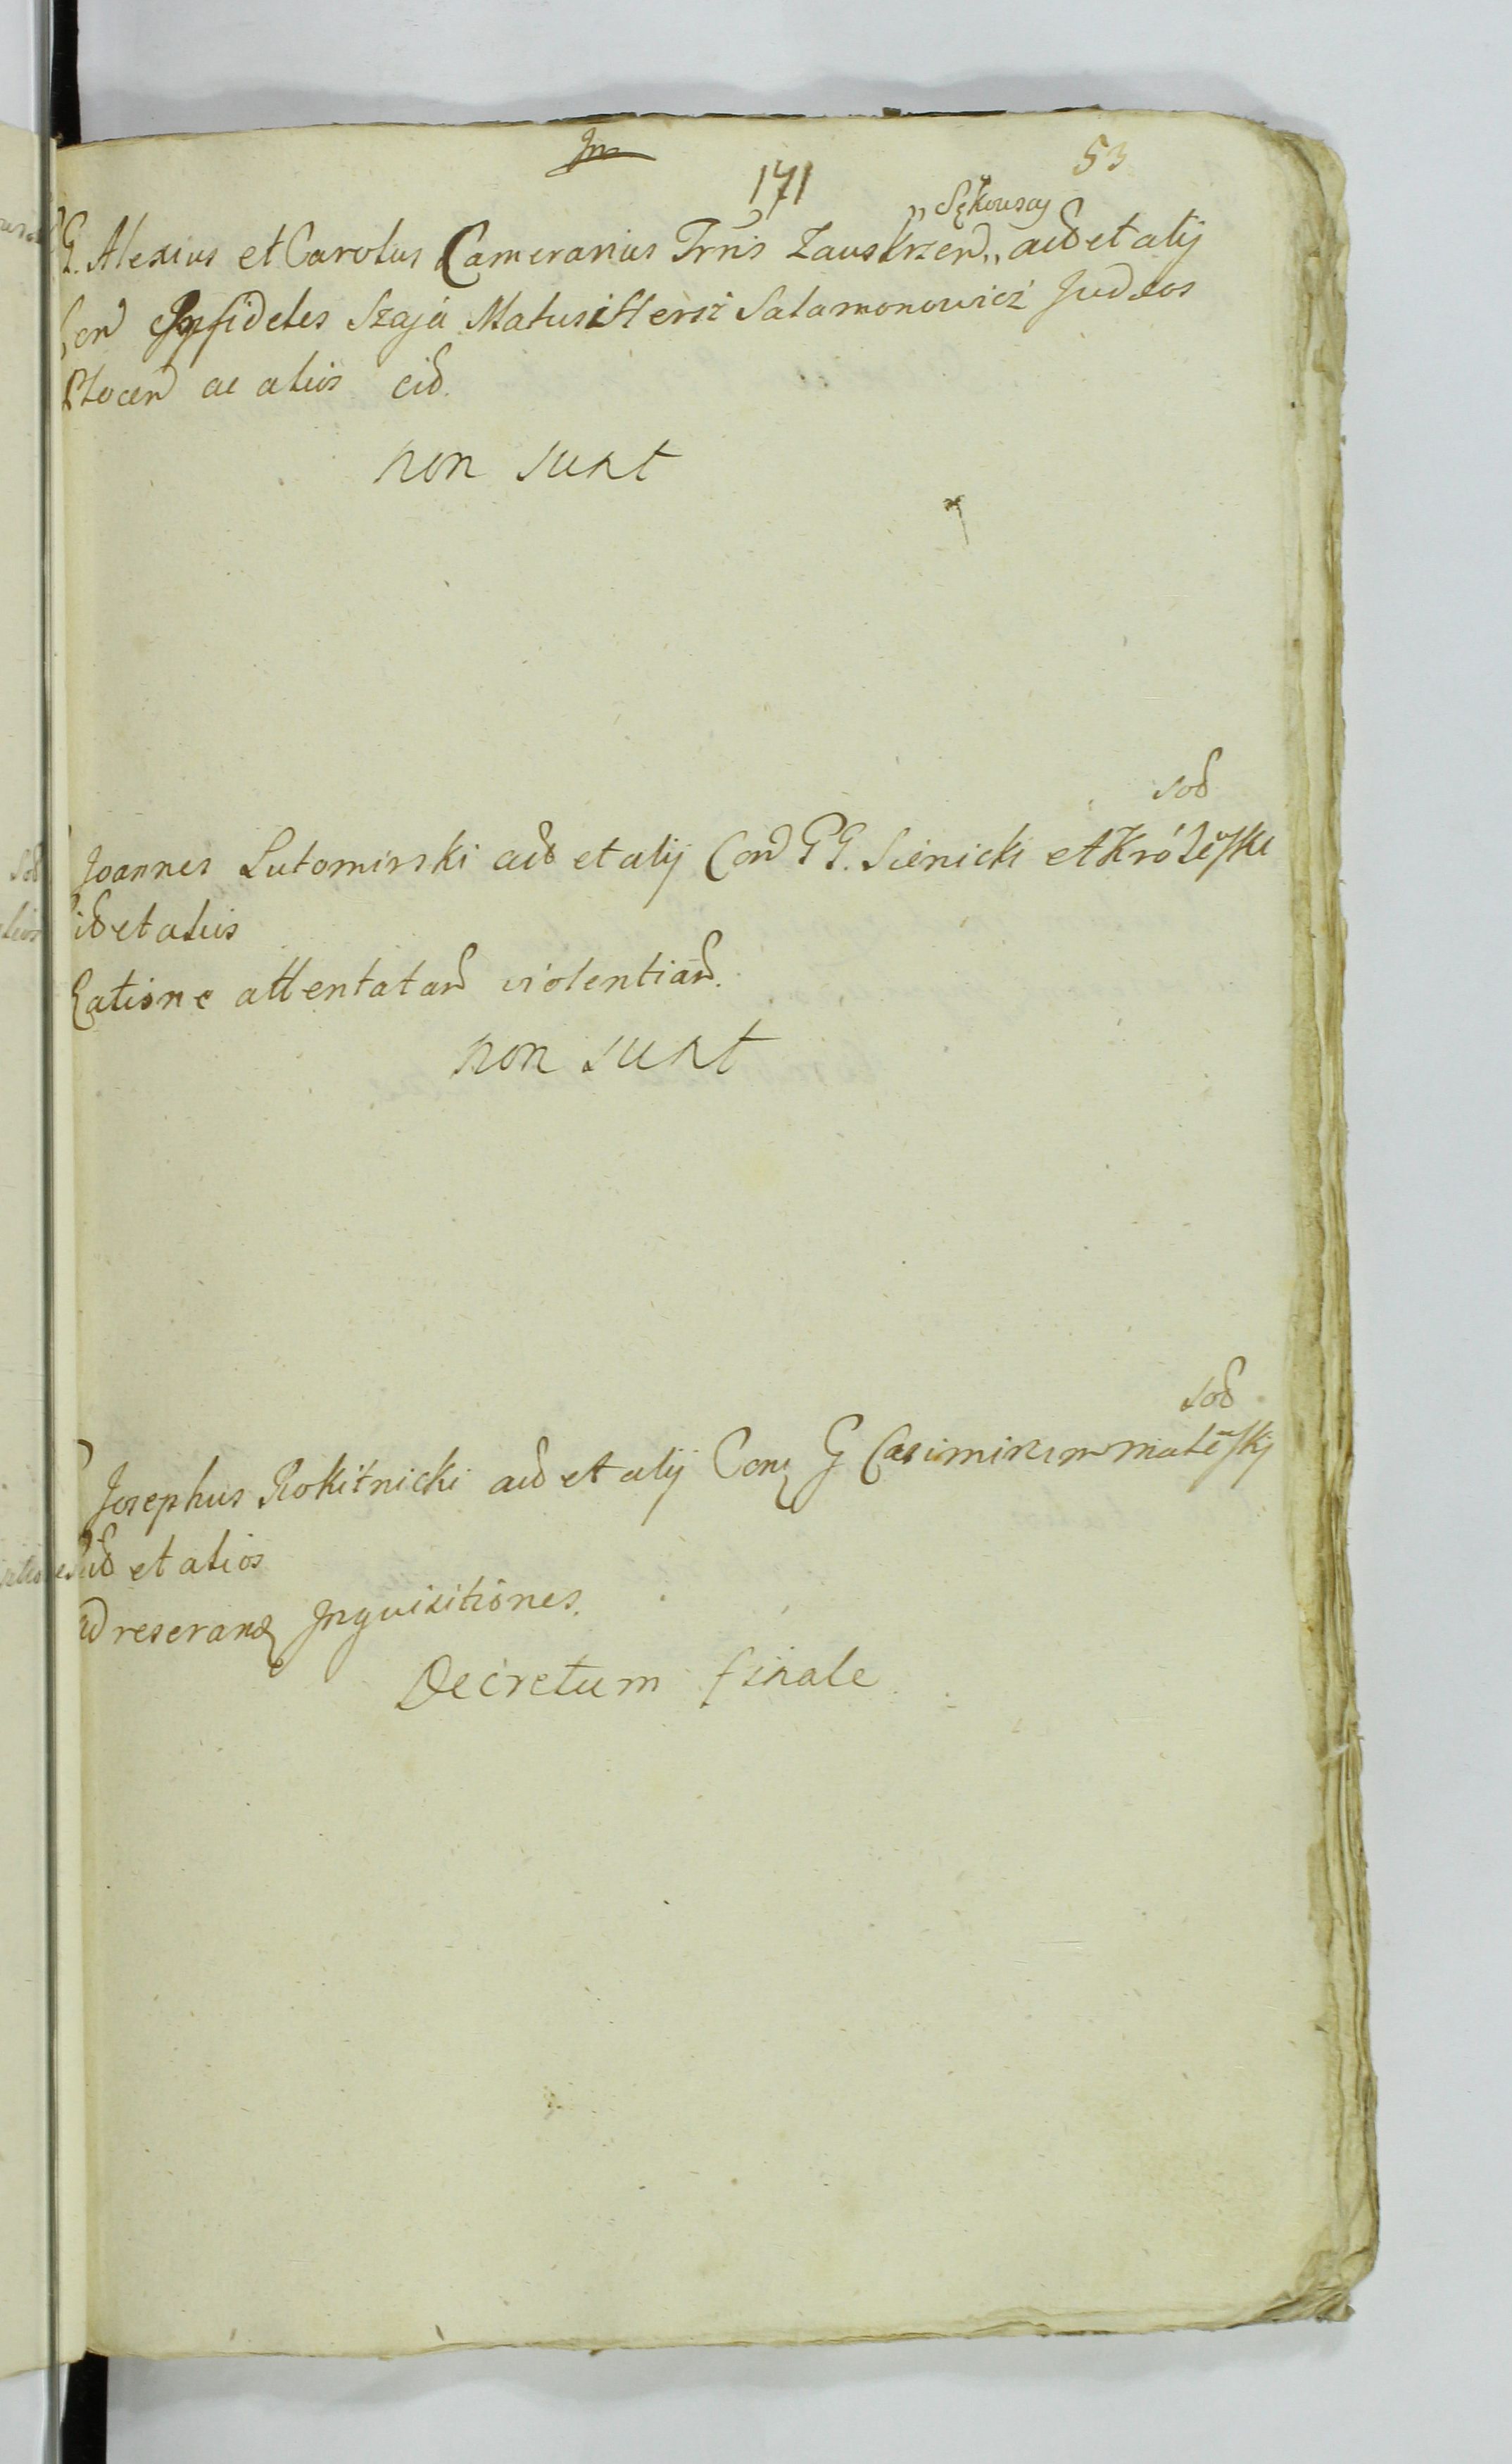 53
171
Sękowscy
G. Alexius et Carolus Camerarius Trris Zauskrzen,, aċ et alij
Con Infideles Szaja Matus i Hersz Salamonowicz Judæos
Plocen ac alios cið.
non sunt
Joannes Lutomirski aið et alij Con GG. Sienicki et
ið et alios
Ratione attentatar violentiar.
non sunt
Josephus Rokitnicki aið et alij Con G Casimirum
et alios
Ad reserand Inquisitiones.
Decretum finale